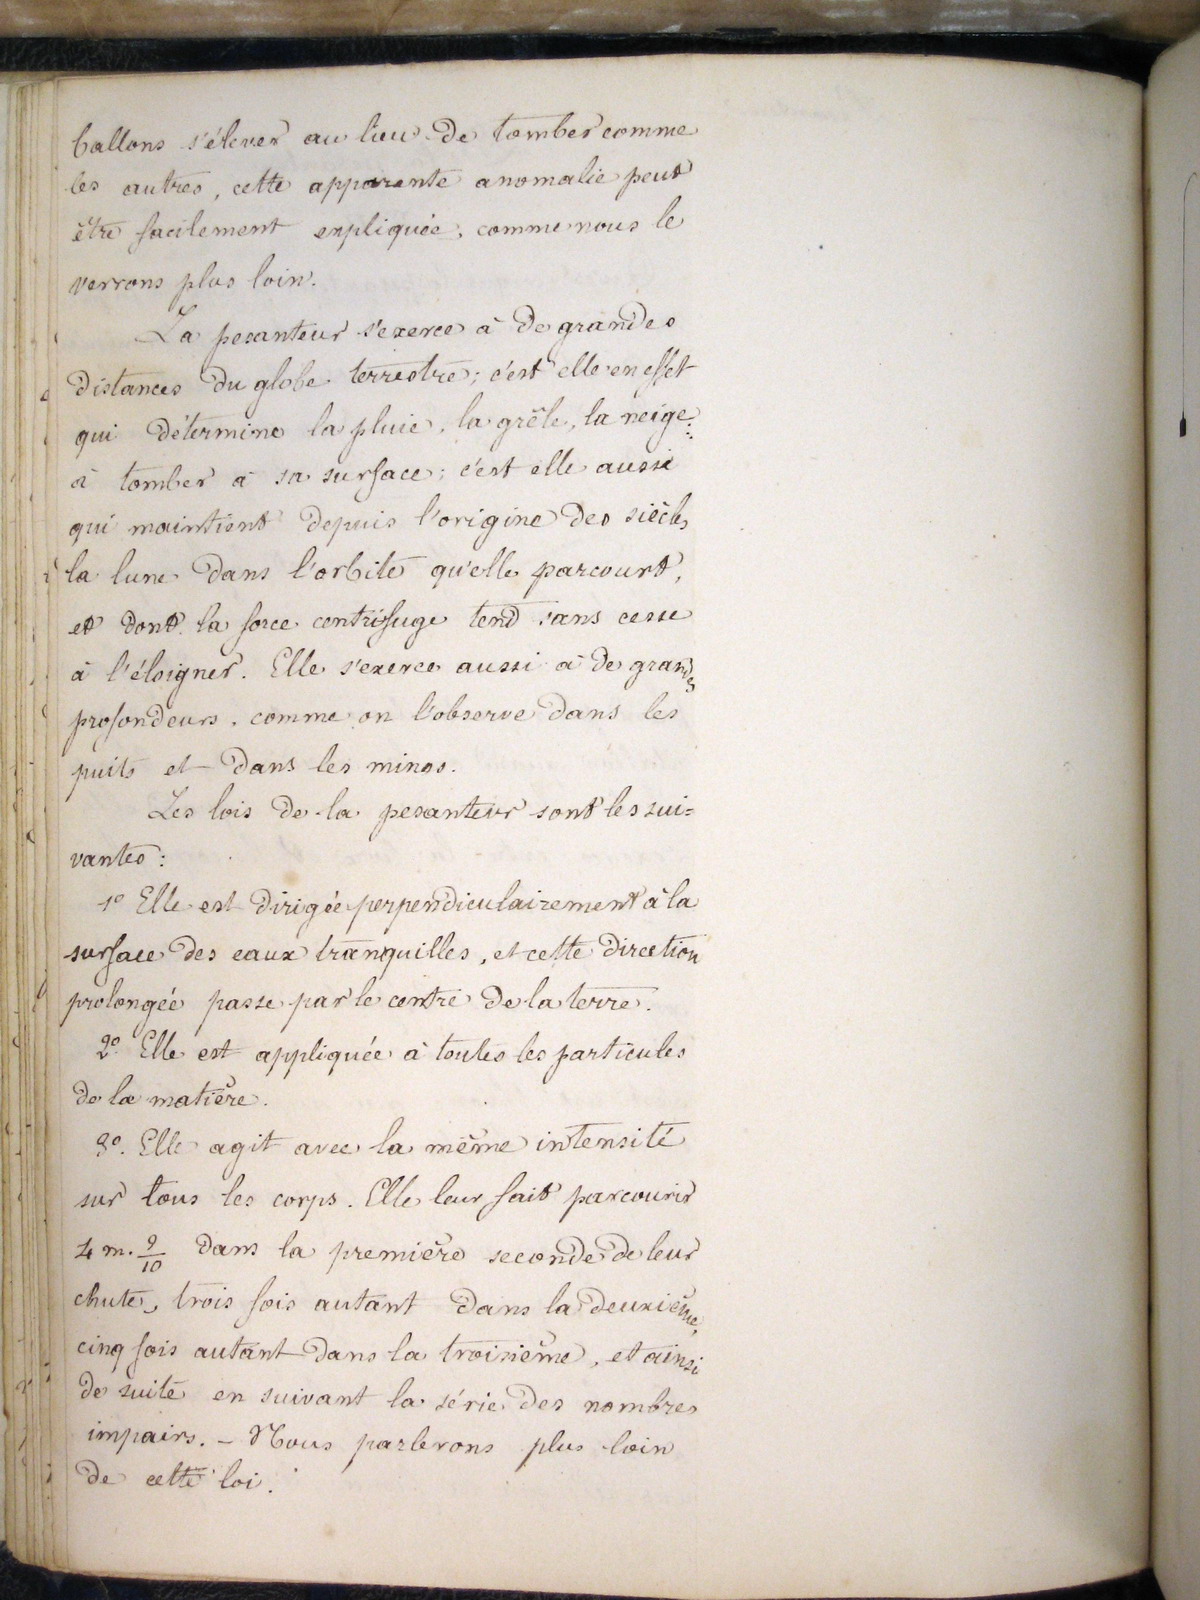 ballons s'élever au lieu de tomber comme
les autres, cette apparente anomalie peut
être facilement expliquée, comme nous le
verrons plus loin.
La pesanteur s'exerce à de grandes
distances du globe terrestre; c'est elle en effet
qui détermine la pluie, la grêle, la neige
à tomber à sa surface; c'est elle aussi
qui maintient depuis l'origine des siècles
la lune dans l'orbite qu'elle parcourt,
et dont la force centrifuge tend sans cesse
à l'éloigner. Elle s'exerce aussi à de grandes
profondeurs, comme on l'observe dans les
puits et dans les mines.
Les lois de la pesanteur sont les sui=
vantes:
1º Elle est dirigée perpendiculairement à la
surface des eaux tranquilles, et cette direction
prolongée passe par le centre de la terre.
2º. Elle est appliquée à toutes les particules
de la matière.
3º. Elle agit avec la même intensité
sur tous les corps. Elle leur fait parcourir
4 m. 9/10 dans la première seconde de leur
chute, trois fois autant dans la deuxième,
cinq fois autant dans la troisième, et ainsi
de suite en suivant la série des nombres
impairs. – Nous parlerons plus loin
de cette loi.